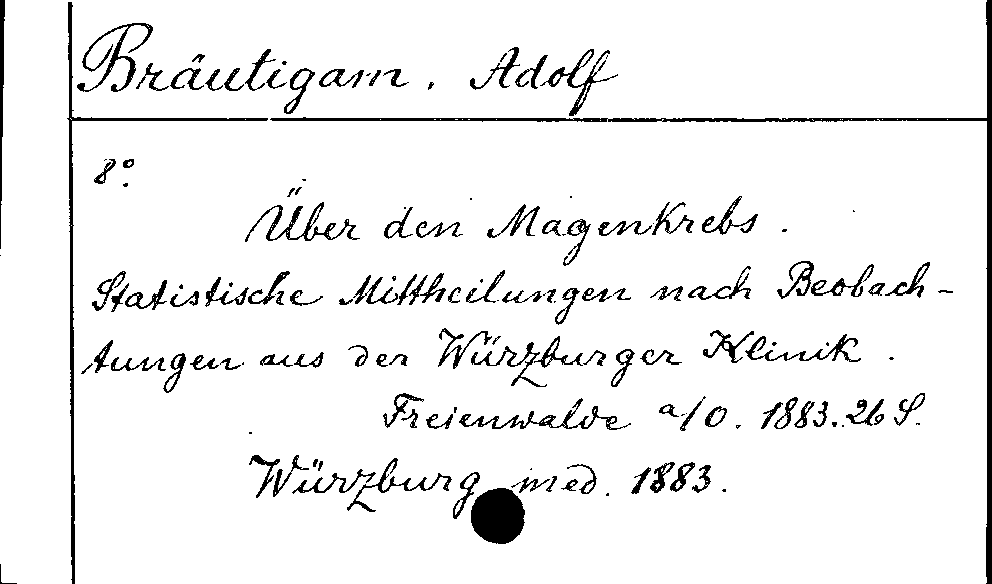 Bräutigam, Adolf
8°.
Über den Magenkrebs.
Statistische Mittheilungen nach Beobach-
tungen aus der Würzburger Klinik.
Freienwalde a/O. 1883. 26 S.
Würzburg med. 1883.